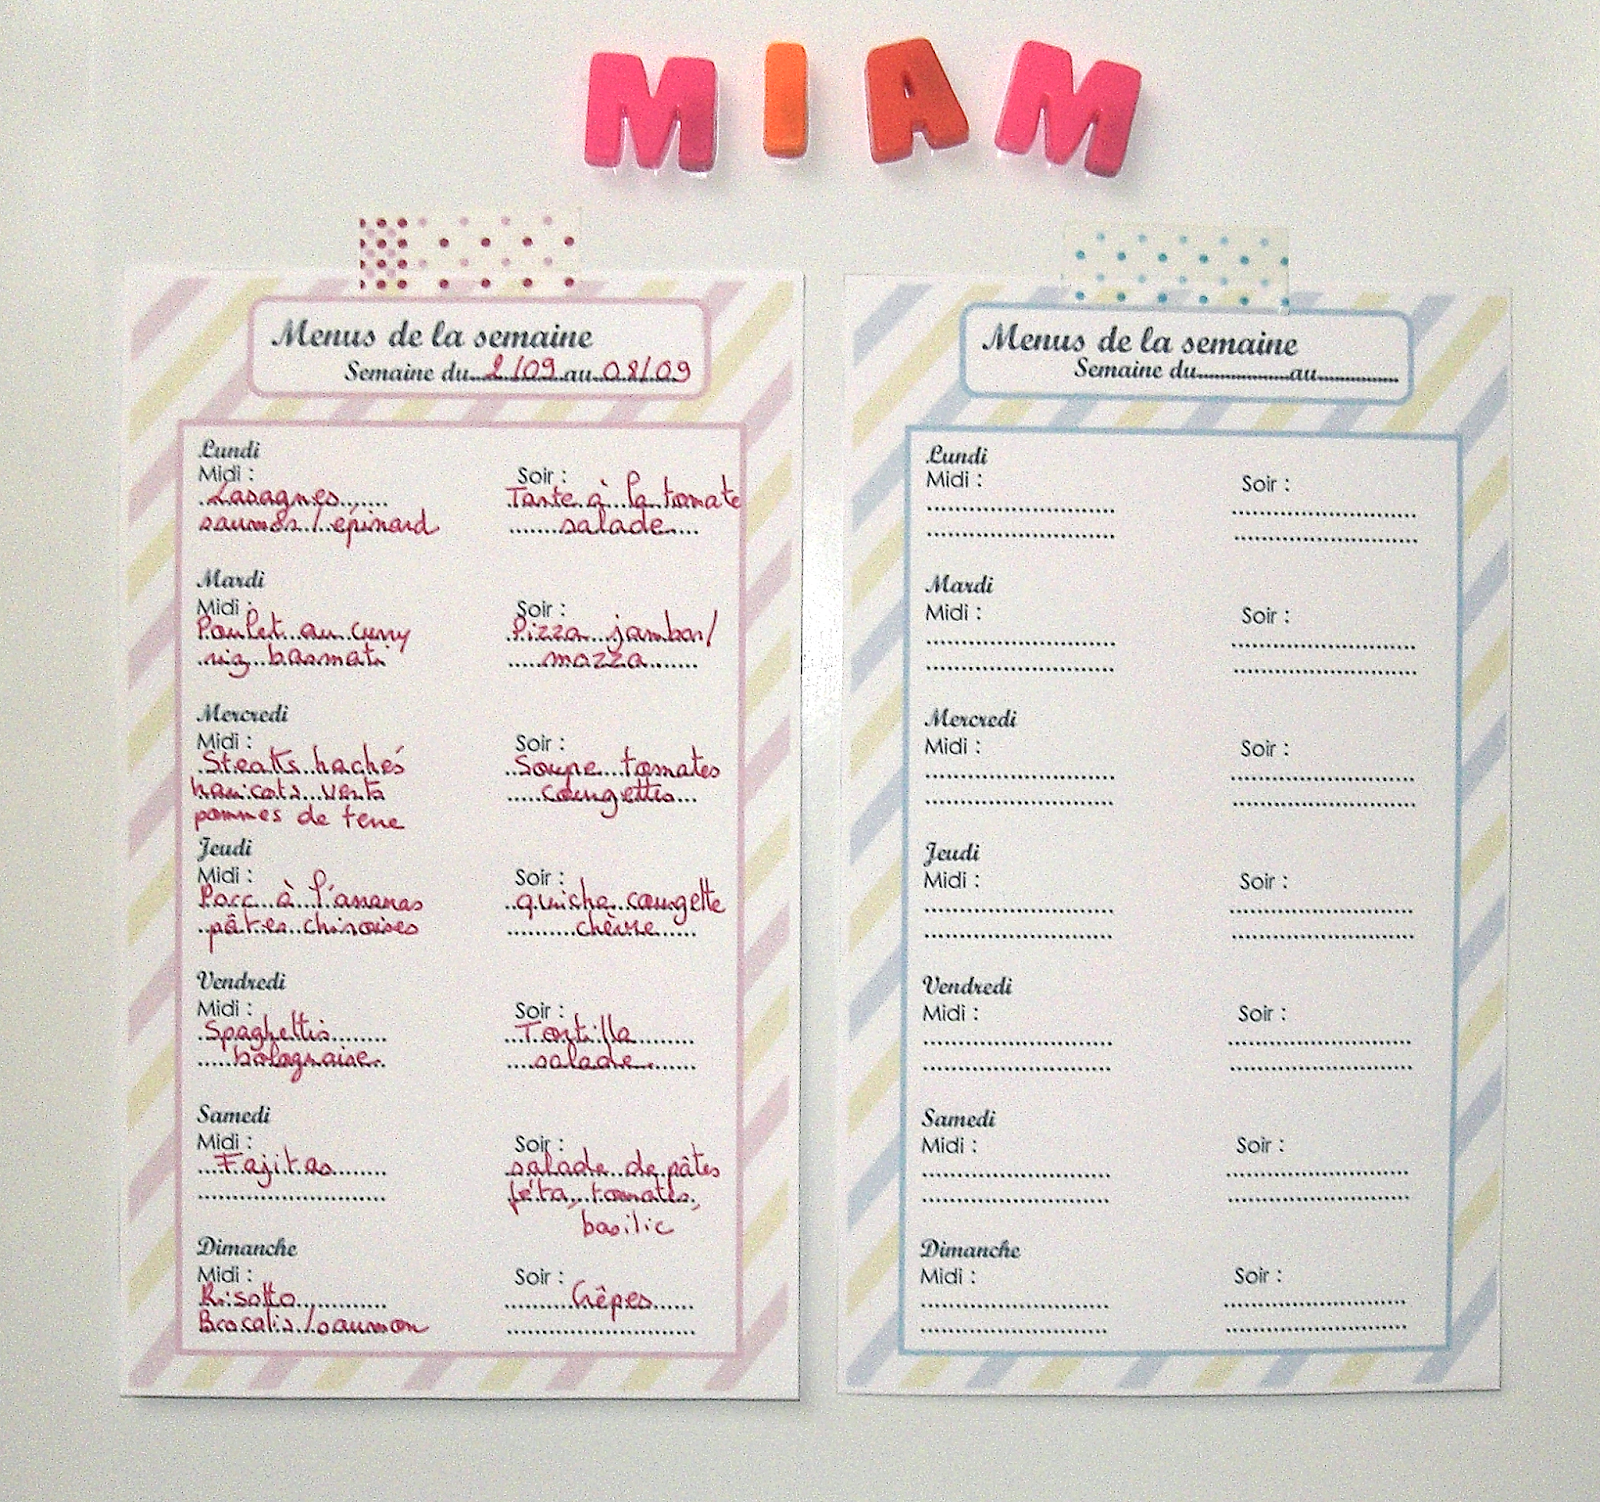 MIAM
Menus de la semaine
Semaine du 2/09 au 08/09
Lundi
Midi :
Lasagnes
saumon / épinard
Soir :
Tarte à la tomate
salade
Mardi
Midi :
Poulet au curry
riz basmati
Soir :
Pizza jambon/
mozza
Mercredi
Midi :
Steaks hachés
haricots verts
pommes de terre
Soir :
Soupe tomates
courgettes
Jeudi
Midi :
Porc à l'ananas
pâtes chinoises
Soir :
quiche courgette
chèvre
Vendredi
Midi :
Spaghettis
bolognaise
Soir :
Tortilla
salade
Samedi
Midi :
Fajitas
Soir :
salade de pâtes
féta, tomates,
basilic
Dimanche
Midi :
Risotto
Brocolis / saumon
Soir :
Crêpes
Menus de la semaine
Semaine du au
Lundi
Midi :
Soir :
Mardi
Midi :
Soir :
Mercredi
Midi :
Soir :
Jeudi
Midi :
Soir :
Vendredi
Midi :
Soir :
Samedi
Midi :
Soir :
Dimanche
Midi :
Soir :